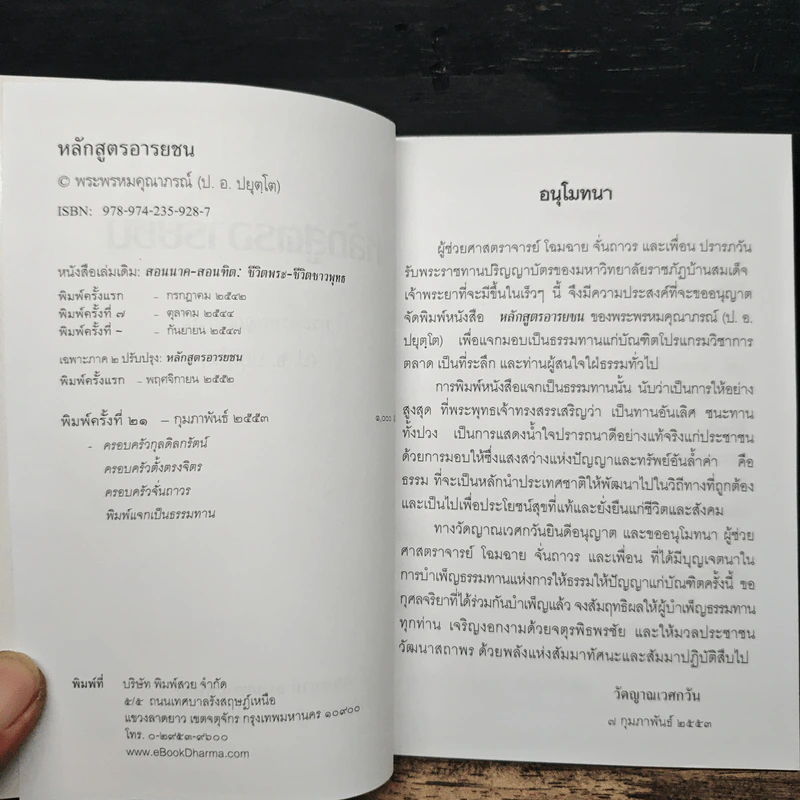 หลักสูตรอารยชน
© พระพรหมคุณาภรณ์ (ป. อ. ปยุตฺโต)
ISBN: 978-974-235-928-7
หนังสือเล่มเดิม: สอนนาค-สอนฑิต: ชีวิตพระ-ชีวิตชาวพุทธ
พิมพ์ครั้งแรก - กรกฎาคม ๒๕๔๒
พิมพ์ครั้งที่ ๗ - ตุลาคม ๒๕๔๔
พิมพ์ครั้งที่ ~ - กันยายน ๒๕๔๗
เฉพาะภาค ๒ ปรับปรุง: หลักสูตรอารยชน
พิมพ์ครั้งแรก - พฤศจิกายน ๒๕๕๒
พิมพ์ครั้งที่ ๒๑ – กุมภาพันธ์ ๒๕๕๓ ๑,๐๐๐
- ครอบครัวกุลดิลกรัตน์
ครอบครัวตั้งตรงจิตร
ครอบครัวจั่นถาวร
พิมพ์แจกเป็นธรรมทาน
พิมพ์ที่ บริษัท พิมพ์สวย จำกัด
๕/๕ ถนนเทศบาลรังสฤษฎ์เหนือ
แขวงลาดยาว เขตจตุจักร กรุงเทพมหานคร ๑๐๙๐๐
โทร. ๐-๒๙๕๓-๙๖๐๐
www.eBookDharma.com
อนุโมทนา
ผู้ช่วยศาสตราจารย์ โฉมฉาย จั่นถาวร และเพื่อน ปรารภวัน
รับพระราชทานปริญญาบัตรของมหาวิทยาลัยราชภัฏบ้านสมเด็จ
เจ้าพระยาที่จะมีขึ้นในเร็วๆ นี้ จึงมีความประสงค์ที่จะขออนุญาต
จัดพิมพ์หนังสือ หลักสูตรอารยชน ของพระพรหมคุณาภรณ์ (ป. อ.
ปยุตฺโต) เพื่อแจกมอบเป็นธรรมทานแก่บัณฑิตโปรแกรมวิชาการ
ตลาด เป็นที่ระลึก และท่านผู้สนใจใฝ่ธรรมทั่วไป
การพิมพ์หนังสือแจกเป็นธรรมทานนั้น นับว่าเป็นการให้อย่าง
สูงสุด ที่พระพุทธเจ้าทรงสรรเสริญว่า เป็นทานอันเลิศ ชนะทาน
ทั้งปวง เป็นการแสดงน้ำใจปรารถนาดีอย่างแท้จริงแก่ประชาชน
ด้วยการมอบให้ซึ่งแสงสว่างแห่งปัญญาและทรัพย์อันล้ำค่า คือ
ธรรม ที่จะเป็นหลักนำประเทศชาติให้พัฒนาไปในวิถีทางที่ถูกต้อง
และเป็นไปเพื่อประโยชน์สุขที่แท้และยั่งยืนแก่ชีวิตและสังคม
ทางวัดญาณเวศกวันยินดีอนุญาต และขออนุโมทนา ผู้ช่วย
ศาสตราจารย์ โฉมฉาย จั่นถาวร และเพื่อน ที่ได้มีบุญเจตนาใน
การบำเพ็ญธรรมทานแห่งการให้ธรรมให้ปัญญาแก่บัณฑิตครั้งนี้ ขอ
กุศลจริยาที่ได้ร่วมกันบำเพ็ญแล้ว จงสัมฤทธิผลให้ผู้บำเพ็ญธรรมทาน
ทุกท่าน เจริญงอกงามด้วยจตุรพิธพรชัย และให้มวลประชาชน
วัฒนาสถาพร ด้วยพลังแห่งสัมมาทัศนะและสัมมาปฏิบัติสืบไป
วัดญาณเวศกวัน
๗ กุมภาพันธ์ ๒๕๕๓